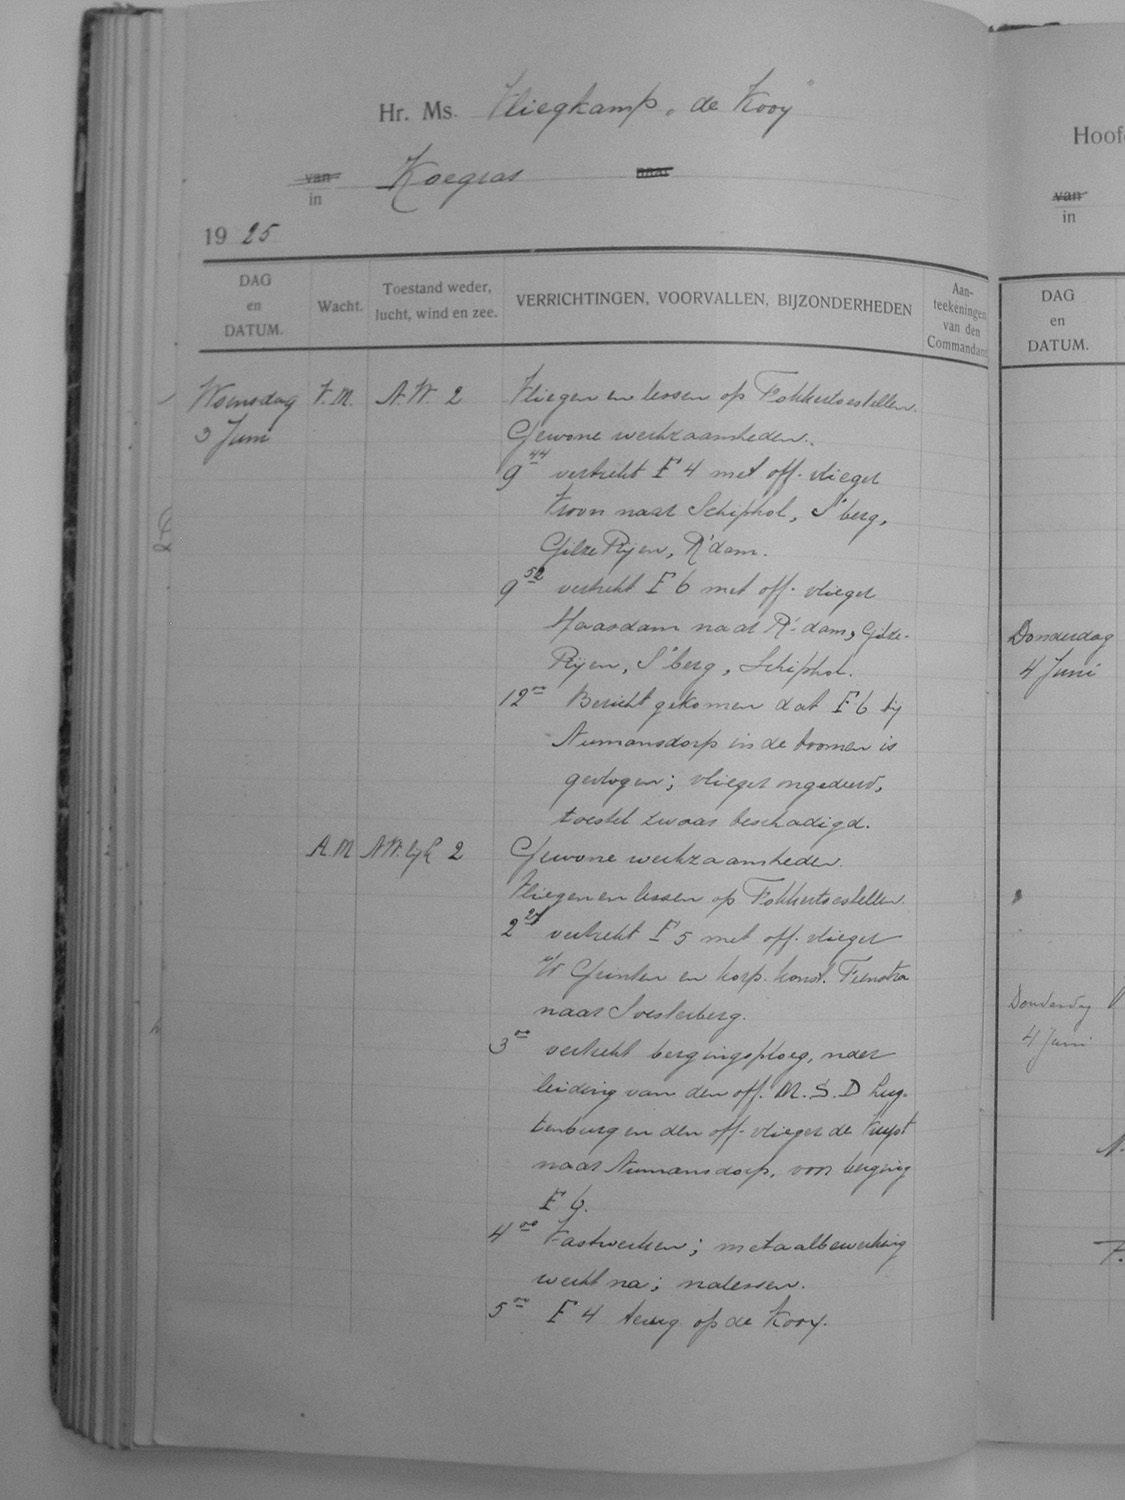 Hr. Ms. Vliegkamp „de Kooy"
van
in Koegras
1925
DAG en DATUM. Wacht. Toestand weder, lucht, wind en zee. VERRICHTINGEN, VOORVALLEN, BIJZONDERHEDEN Aan- teekeningen van den Commandant
Woensdag V.M. N.W. 2 Vliegen en lessen op Fokkertoestellen.
3 Juni Gewone werkzaamheden.
9 44 vertrekt F 4 met off. vlieger
Kroon naar Schiphol, S'berg,
Gilze Rijen, R'dam.
9 52 vertrekt F 6 met off. vlieger
Maasdam naar R'dam, Gilze-
Rijen, S'berg, Schiphol.
12 00 Bericht gekomen dat F 6 bij
Numansdorp in de boomen is
gevlogen; vlieger ongedeerd,
toestel zwaar beschadigd.
A.M N.W. 2 Gewone werkzaamheden.
Vliegen en lessen op Fokkertoestellen.
2 27 vertrekt F 5 met off. vlieger
en korp. konst. Feenstra
naar Soesterberg.
3 00 vertrekt bergingsploeg, onder
leiding van den off. M.S.D Lug-
tenburg en den off. vlieger de
naar Numansdorp, voor berging
F 6.
4 00 Vastwerken; metaalbewerking
werkt na; nalessen.
5 00 F 4 terug op de Kooy.
Hoof
van
in
DAG
en
DATUM.
Donderdag
4 Juni
Donderdag
4 Juni